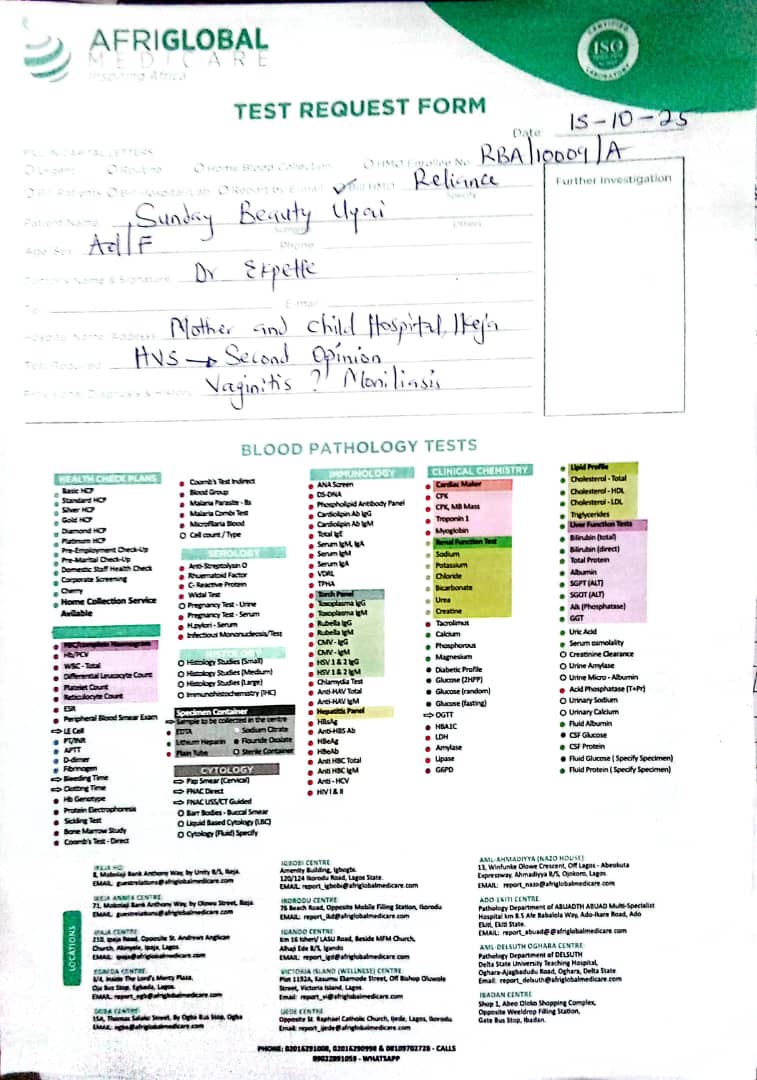 AFRIGLOBAL
MEDICARE
Inspiring Africa
CERTIFIED
ISO
LABORATORY
TEST REQUEST FORM
Date 15-10-25
FILL IN CAPITAL LETTERS
Urgent Routine Home Blood Collection HMO Enrollee No RBA/10009/A
Bill Patients Bill Hospital/Lab Report by E-mail Bill HMO Reliance
Specify
Further Investigation
Patient Name Sunday Beauty
Surname Others
Age/Sex Ad/F Phone
Doctor's Name & Signature Dr
To E-mail
Hospital Name/Address Mother and Child Hospital, Ikeja
Test Required HVS → Second Opinion
Provisional Diagnosis & History Vaginitis ? Moniliasis
BLOOD PATHOLOGY TESTS
HEALTH CHECK PLANS
Basic HCP
Standard HCP
Silver HCP
Gold HCP
Diamond HCP
Platinum HCP
Pre-Employment Check-Up
Pre-Marital Check-Up
Domestic Staff Health Check
Corporate Screening
Cherry
Home Collection Service
Available
FBC/complete Haemogram
Hb/PCV
WBC - Total
Differential Leucocyte Count
Platelet Count
Reticulocyte Count
ESR
Peripheral Blood Smear Exam
LE Cell
PT/INR
APTT
D-dimer
Fibrinogen
Bleeding Time
Clotting Time
Hb Genotype
Protein Electrophoresis
Sickling Test
Bone Marrow Study
Coomb's Test - Direct
Coomb's Test Indirect
Blood Group
Malaria Parasite - Bs
Malaria Combi Test
Microfilaria Blood
Cell count / Type
SEROLOGY
Anti-Streptolysin O
Rheumatoid Factor
C- Reactive Protein
Widal Test
Pregnancy Test - Urine
Pregnancy Test - Serum
H.pylori - Serum
Infectious Mononucleosis/Test
HISTOLOGY
Histology Studies (Small)
Histology Studies (Medium)
Histology Studies (Large)
Immunohistochemistry (IHC)
Specimen Container
Sample to be collected in the centre
EDTA Sodium Citrate
Lithium Heparin Flouride Oxalate
Plain Tube Sterile Container
CYTOLOGY
Pap Smear (Cervical)
FNAC Direct
FNAC USS/CT Guided
Barr Bodies - Buccal Smear
Liquid Based Cytology (LBC)
Cytology (Fluid) Specify
IMMUNOLOGY
ANA Screen
DS-DNA
Phospholipid Antibody Panel
Cardiolipin Ab IgG
Cardiolipin Ab IgM
Total IgE
Serum IgM, IgA
Serum IgM
Serum IgA
VDRL
TPHA
Torch Panel
Toxoplasma IgG
Toxoplasma IgM
Rubella IgG
Rubella IgM
CMV - IgG
CMV - IgM
HSV 1 & 2 IgG
HSV 1 & 2 IgM
Chlamydia Test
Anti-HAV Total
Anti-HAV IgM
Hepatitis Panel
HBsAg
Anti-HBS Ab
HBeAg
HBeAb
Anti HBC Total
Anti HBC IgM
Anti - HCV
HIV I & II
CLINICAL CHEMISTRY
Cardiac Maker
CPK
CPK, MB Mass
Troponin 1
Myoglobin
Renal Function Test
Sodium
Potassium
Chloride
Bicarbonate
Urea
Creatine
Tacrolimus
Calcium
Phosphorous
Magnesium
Diabetic Profile
Glucose (2HPP)
Glucose (random)
Glucose (fasting)
OGTT
HBA1C
LDH
Amylase
Lipase
G6PD
Lipid Profile
Cholesterol - Total
Cholesterol - HDL
Cholesterol - LDL
Triglycerides
Liver Function Tests
Bilirubin (total)
Bilirubin (direct)
Total Protein
Albumin
SGPT (ALT)
SGOT (ALT)
Alk (Phosphatase)
GGT
Uric Acid
Serum osmolality
Creatinine Clearance
Urine Amylase
Urine Micro - Albumin
Acid Phosphatase (T+Pr)
Urinary Sodium
Urinary Calcium
Fluid Albumin
CSF Glucose
CSF Protein
Fluid Glucose ( Specify Specimen)
Fluid Protein ( Specify Specimen)
LOCATIONS
IKEJA HQ
8, Mobolaji Bank Anthony Way, by Unity B/S, Ikeja.
EMAIL: guestrelations@afriglobalmedicare.com
IKEJA ANNEX CENTRE
71, Mobolaji Bank Anthony Way, by Olowu Street, Ikeja.
EMAIL: guestrelations@afriglobalmedicare.com
IPAJA CENTRE
210, Ipaja Road, Opposite St. Andrews Anglican
Church, Akinyele, Ipaja, Lagos.
EMAIL: ipaja@afriglobalmedicare.com
EGBEDA CENTRE
3/4, Inside The Lord's Mercy Plaza,
Oja Bus Stop, Egbeda, Lagos.
EMAIL: report_egb@afriglobalmedicare.com
OGBA CENTRE
15A, Thomas Salako Street, By Ogba Bus Stop, Ogba
EMAIL: ogba@afriglobalmedicare.com
IGBOBI CENTRE
Amenity Building, Igbogbi.
120/124 Ikorodu Road, Lagos State.
EMAIL: report_igbobi@afriglobalmedicare.com
IKORODU CENTRE
76 Beach Road, Opposite Mobile Filing Station, Ikorodu
EMAIL: report_ikd@afriglobalmedicare.com
IGANDO CENTRE
Km 16 Isheri/ LASU Road, Beside MFM Church,
Alhaji Ede B/S, Igando
EMAIL: report_igd@afriglobalmedicare.com
VICTORIA ISLAND (WELLNESS) CENTRE
Plot 1192A, Kasumu Ekemode Street, Off Bishop Oluwole
Street, Victoria Island, Lagos
Email: report_vi@afriglobalmedicare.com
IJEDE CENTRE
Opposite St. Raphael Catholic Church, Ijede, Lagos, Ikorodu
Email: report_ijede@afriglobalmedicare.com
AML-AHMADIYYA (NAZO HOUSE)
13, Winfunke Olowe Crescent, Off Lagos - Abeokuta
Expressway, Ahmadiyya B/S, Ojokoro, Lagos.
EMAIL: report_nazo@afriglobalmedicare.com
ADO-EKITI CENTRE
Pathology Department of ABUADTH ABUAD Multi-Specialist
Hospital km 8.5 Afe Babalola Way, Ado-Ikare Road, Ado
Ekiti, Ekiti State.
EMAIL: report_abuad@@afriglobalmedicare.com
AML-DELSUTH OGHARA CENTRE
Pathology Department of DELSUTH
Delta State University Teaching Hospital,
Oghara-Ajagbadudu Road, Oghara, Delta State
Email: report_delsuth@afriglobalmedicare.com
IBADAN CENTRE
Shop 1, Abee Oloko Shopping Complex,
Opposite Weeldrop Filling Station,
Gate Bus Stop, Ibadan.
PHONE: 02016291000, 02016290998 & 08109702728 - CALLS
09022891059 - WHATSAPP